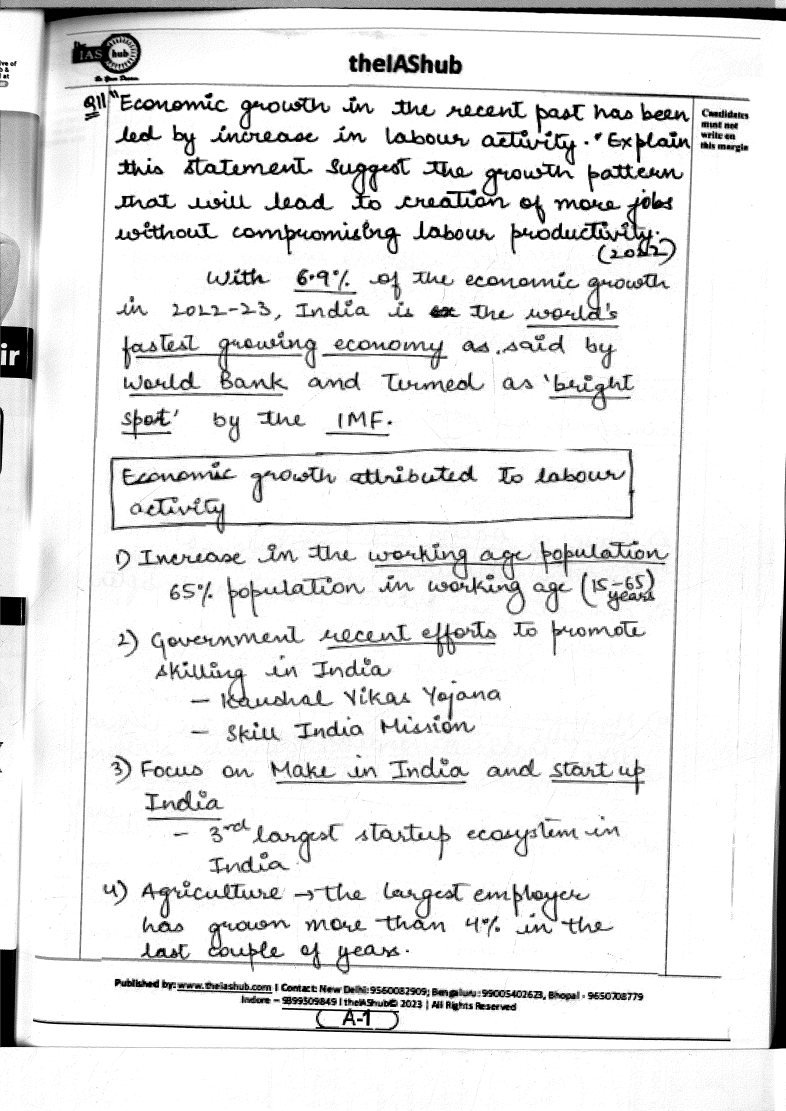 IAS hub
theIAShub
Candidates
must not
write on
this margin
Q11 "Economic growth in the recent past has been
led by increase in labour activity." Explain
this statement. Suggest the growth pattern
that will lead to creation of more jobs
without compromising labour productivity.
(2022)
With 6.9% of the economic growth
in 2022-23, India is the world's
fastest growing economy as said by
World Bank and termed as 'bright
spot' by the IMF.
Economic growth attributed to labour
activity
1) Increase in the working age population
65% population in working age (15-65)
years
2) Government recent efforts to promote
skilling in India
- Kaushal Vikas Yojana
- Skill India Mission
3) Focus on Make in India and start up
India
- 3rd largest startup ecosystem in
India
4) Agriculture → the largest employer
has grown more than 4% in the
last couple of years.
Published by: www.theiashub.com | Contact: New Delhi: 9560082909; Bengaluru: 99005402623, Bhopal - 9650708779
Indore - 9399509849 | theIAShub© 2023 | All Rights Reserved
A-1
ir